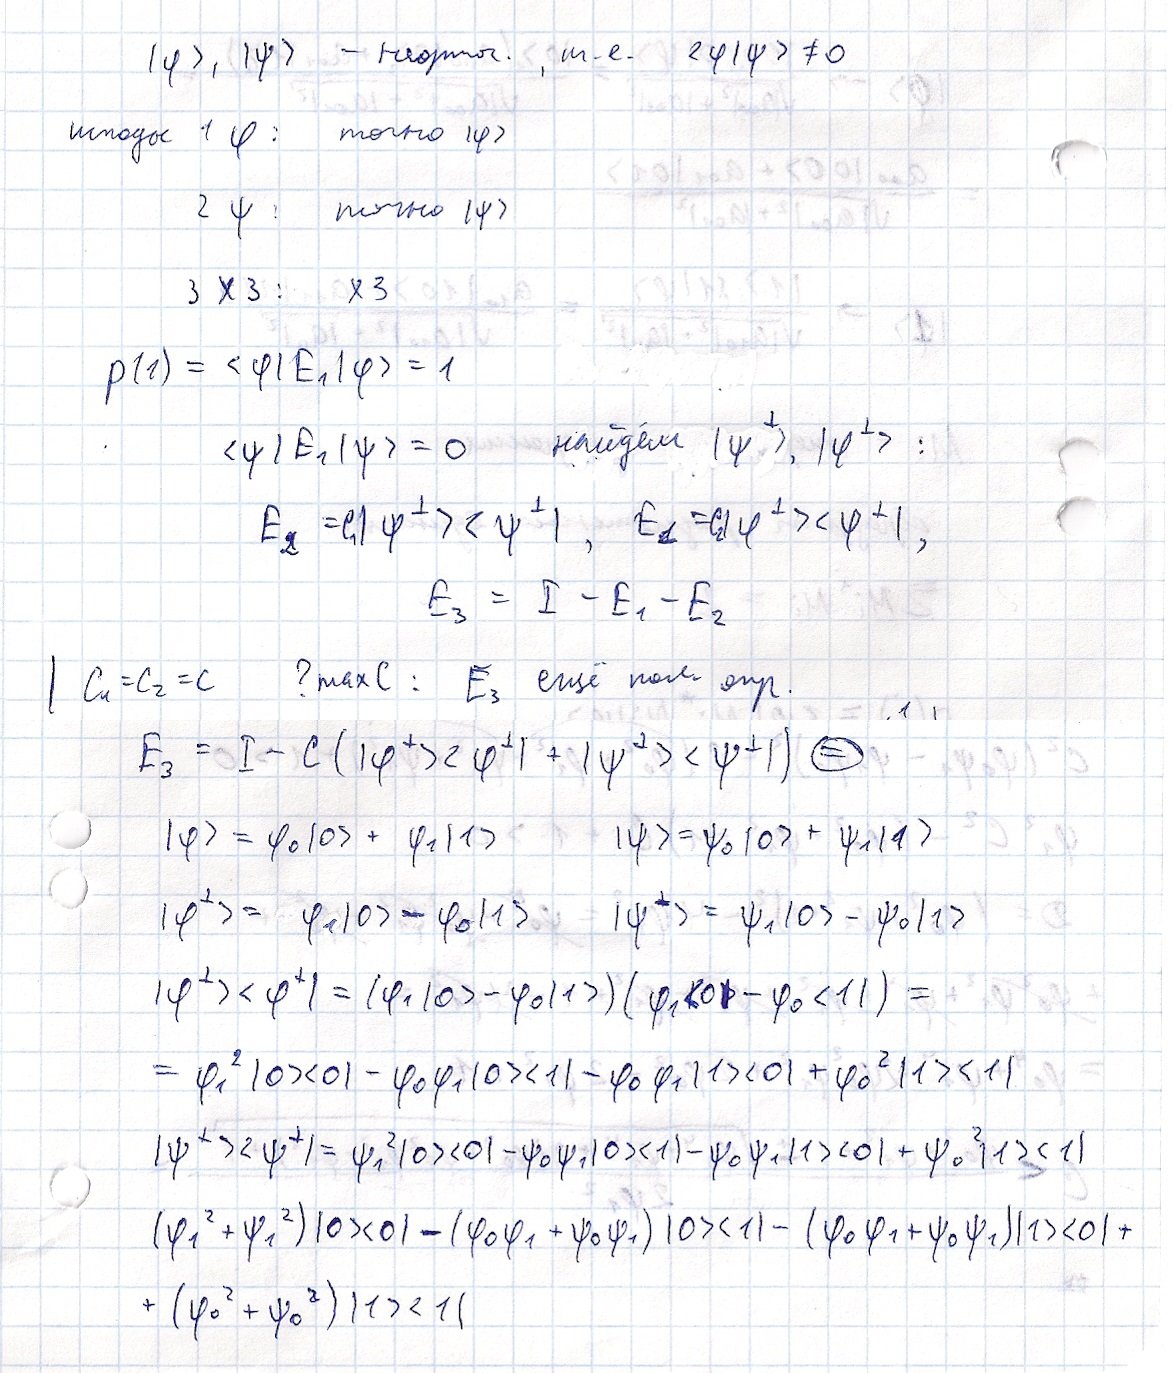 |φ>, |ψ> – неортог., т.е. <φ|ψ> ≠ 0
исходы 1 φ: точно |φ>
2 ψ: точно |ψ>
3 ХЗ: ХЗ
p(1) = <φ|E₁|φ> = 1
<ψ|E₁|ψ> = 0 найдём |ψ^⊥>, |φ^⊥> :
E₁ = C₁|ψ^⊥><ψ^⊥|, E₂ = C₂|φ^⊥><φ^⊥|,
E₃ = I – E₁ – E₂
| C₁ = C₂ = C ? max C : E₃ ещё пол. опр.
E₃ = I – C(|φ^⊥><φ^⊥| + |ψ^⊥><ψ^⊥|) =
|φ> = φ₀|0> + φ₁|1> |ψ> = ψ₀|0> + ψ₁|1>
|φ^⊥> = φ₁|0> – φ₀|1> |ψ^⊥> = ψ₁|0> – ψ₀|1>
|φ^⊥><φ^⊥| = (φ₁|0> – φ₀|1>)(φ₁<0| – φ₀<1|) =
= φ₁²|0><0| – φ₀φ₁|0><1| – φ₀φ₁|1><0| + φ₀²|1><1|
|ψ^⊥><ψ^⊥| = ψ₁²|0><0| – ψ₀ψ₁|0><1| – ψ₀ψ₁|1><0| + ψ₀²|1><1|
(φ₁² + ψ₁²)|0><0| – (φ₀φ₁ + ψ₀ψ₁)|0><1| – (φ₀φ₁ + ψ₀ψ₁)|1><0| +
+ (φ₀² + ψ₀²)|1><1|